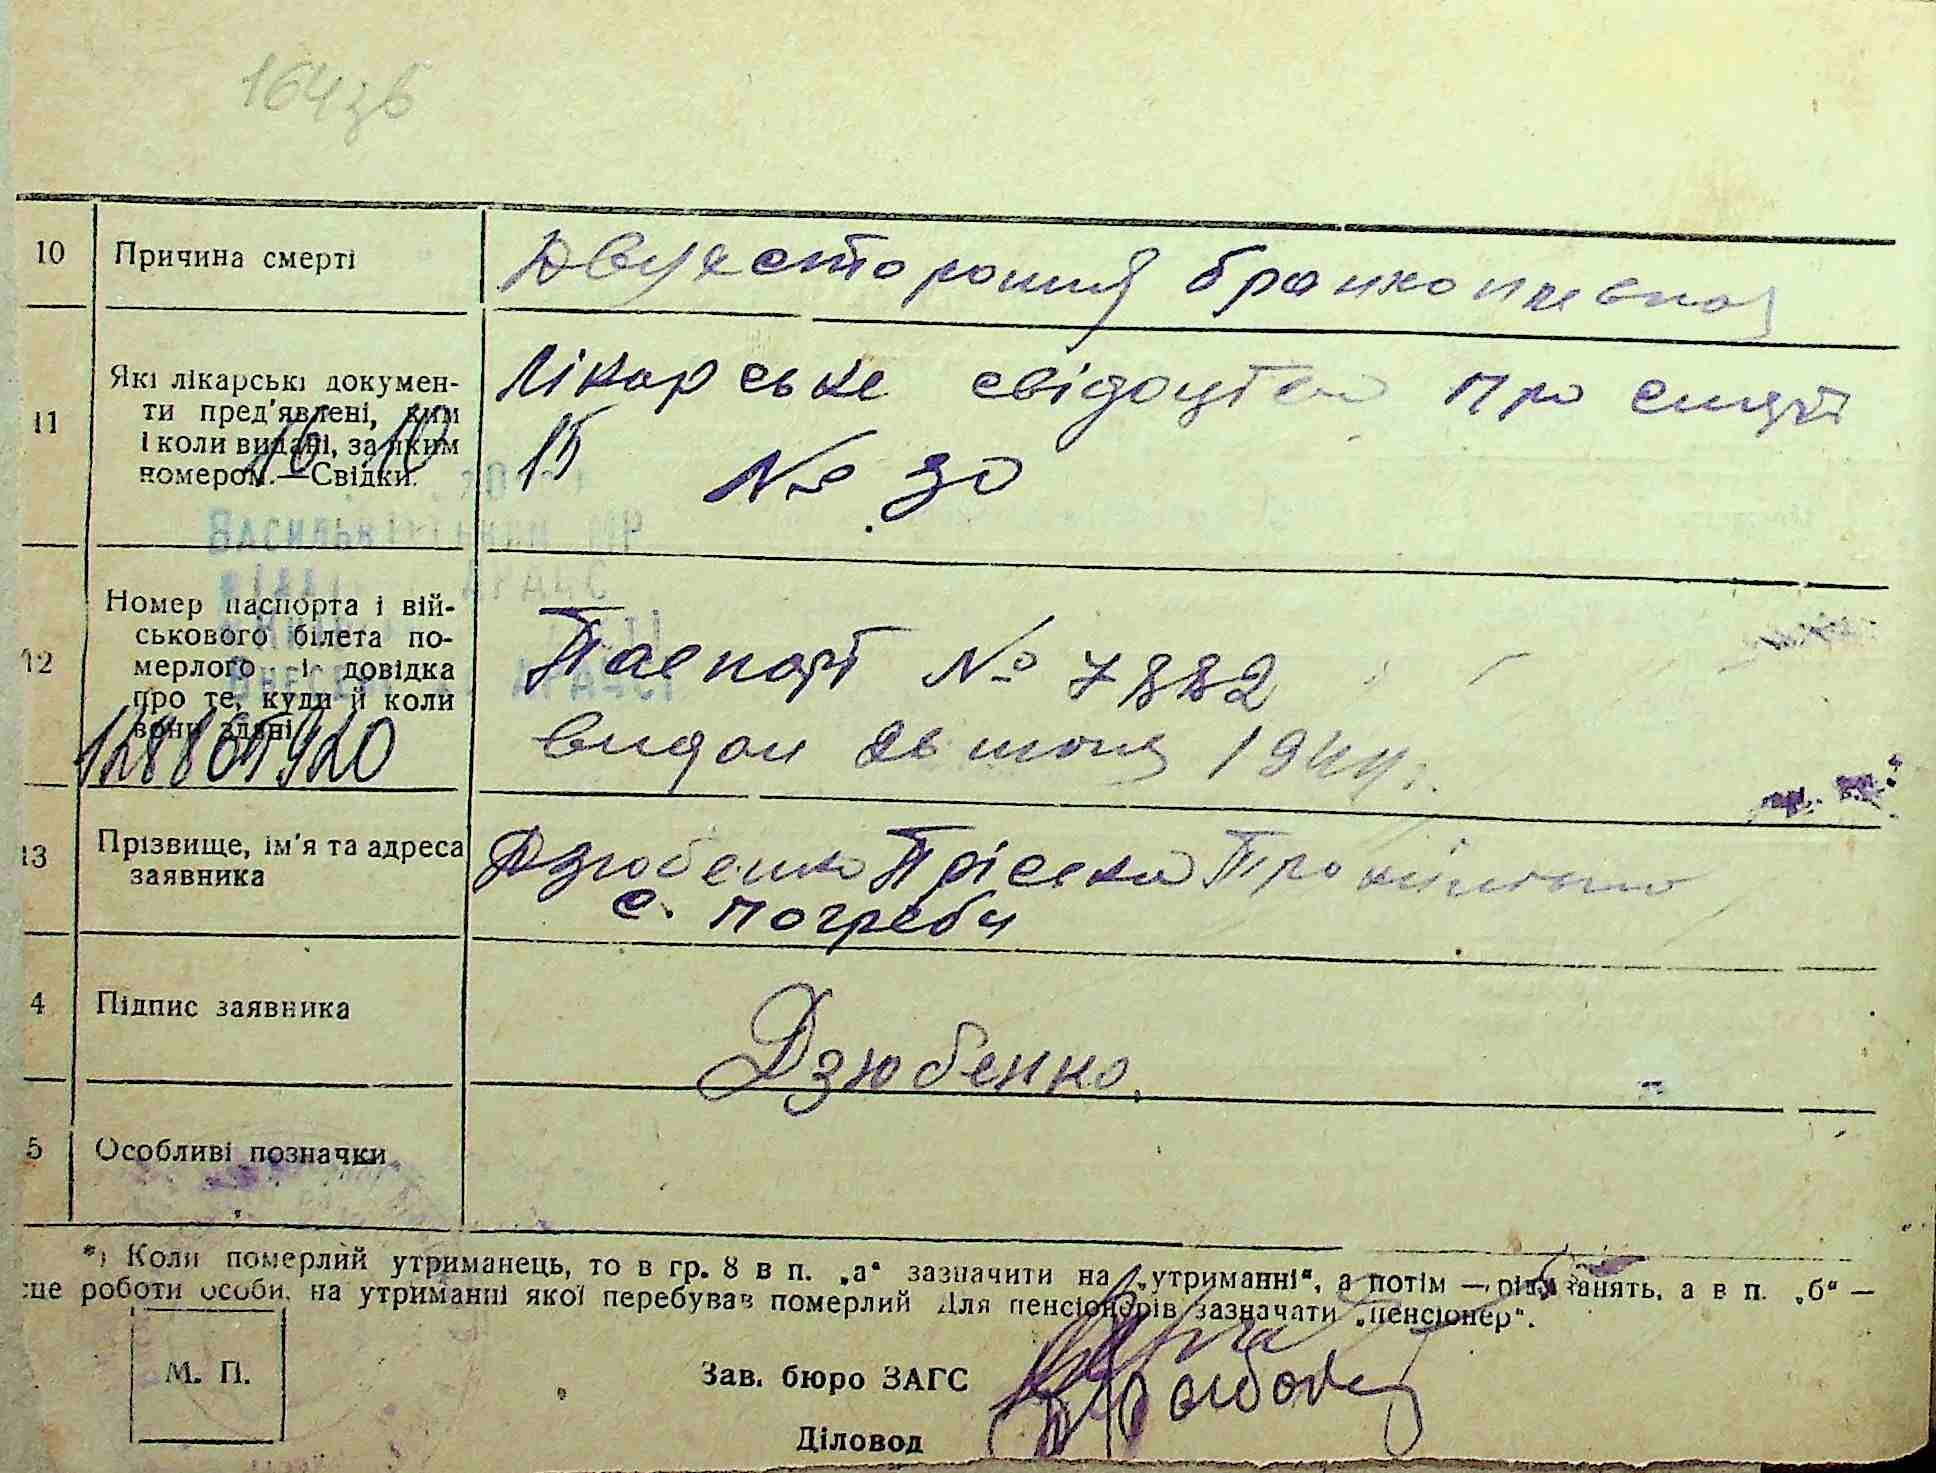 164зв
10 Причина смерті Двухстороння бронхопневмонія
11 Які лікарські докумен-
ти пред'явлені, ким
і коли видані, за яким
номером.—Свідки.
Лікарське свідоцтво про смерть
№ 30
16 10 15
Васильківським
12 Номер паспорта і вій-
ськового білета по-
мерлого і довідка
про те, куди й коли
вони здані
Паспорт № 7882
видан 26 июня 1944 г.
128865920
13 Прізвище, ім'я та адреса
заявника
Дзюбенко Пріська
с. Погреби
4 Підпис заявника
Дзюбенко
5 Особливі позначки
*) Коли померлий утриманець, то в гр. 8 в п. „а“ зазначити на „утриманні“, а потім — рід занять, а в п. „б“ —
це роботи особи, на утриманні якої перебував померлий Для пенсіонерів зазначати „пенсіонер“.
М. П.
Зав. бюро ЗАГС
Діловод